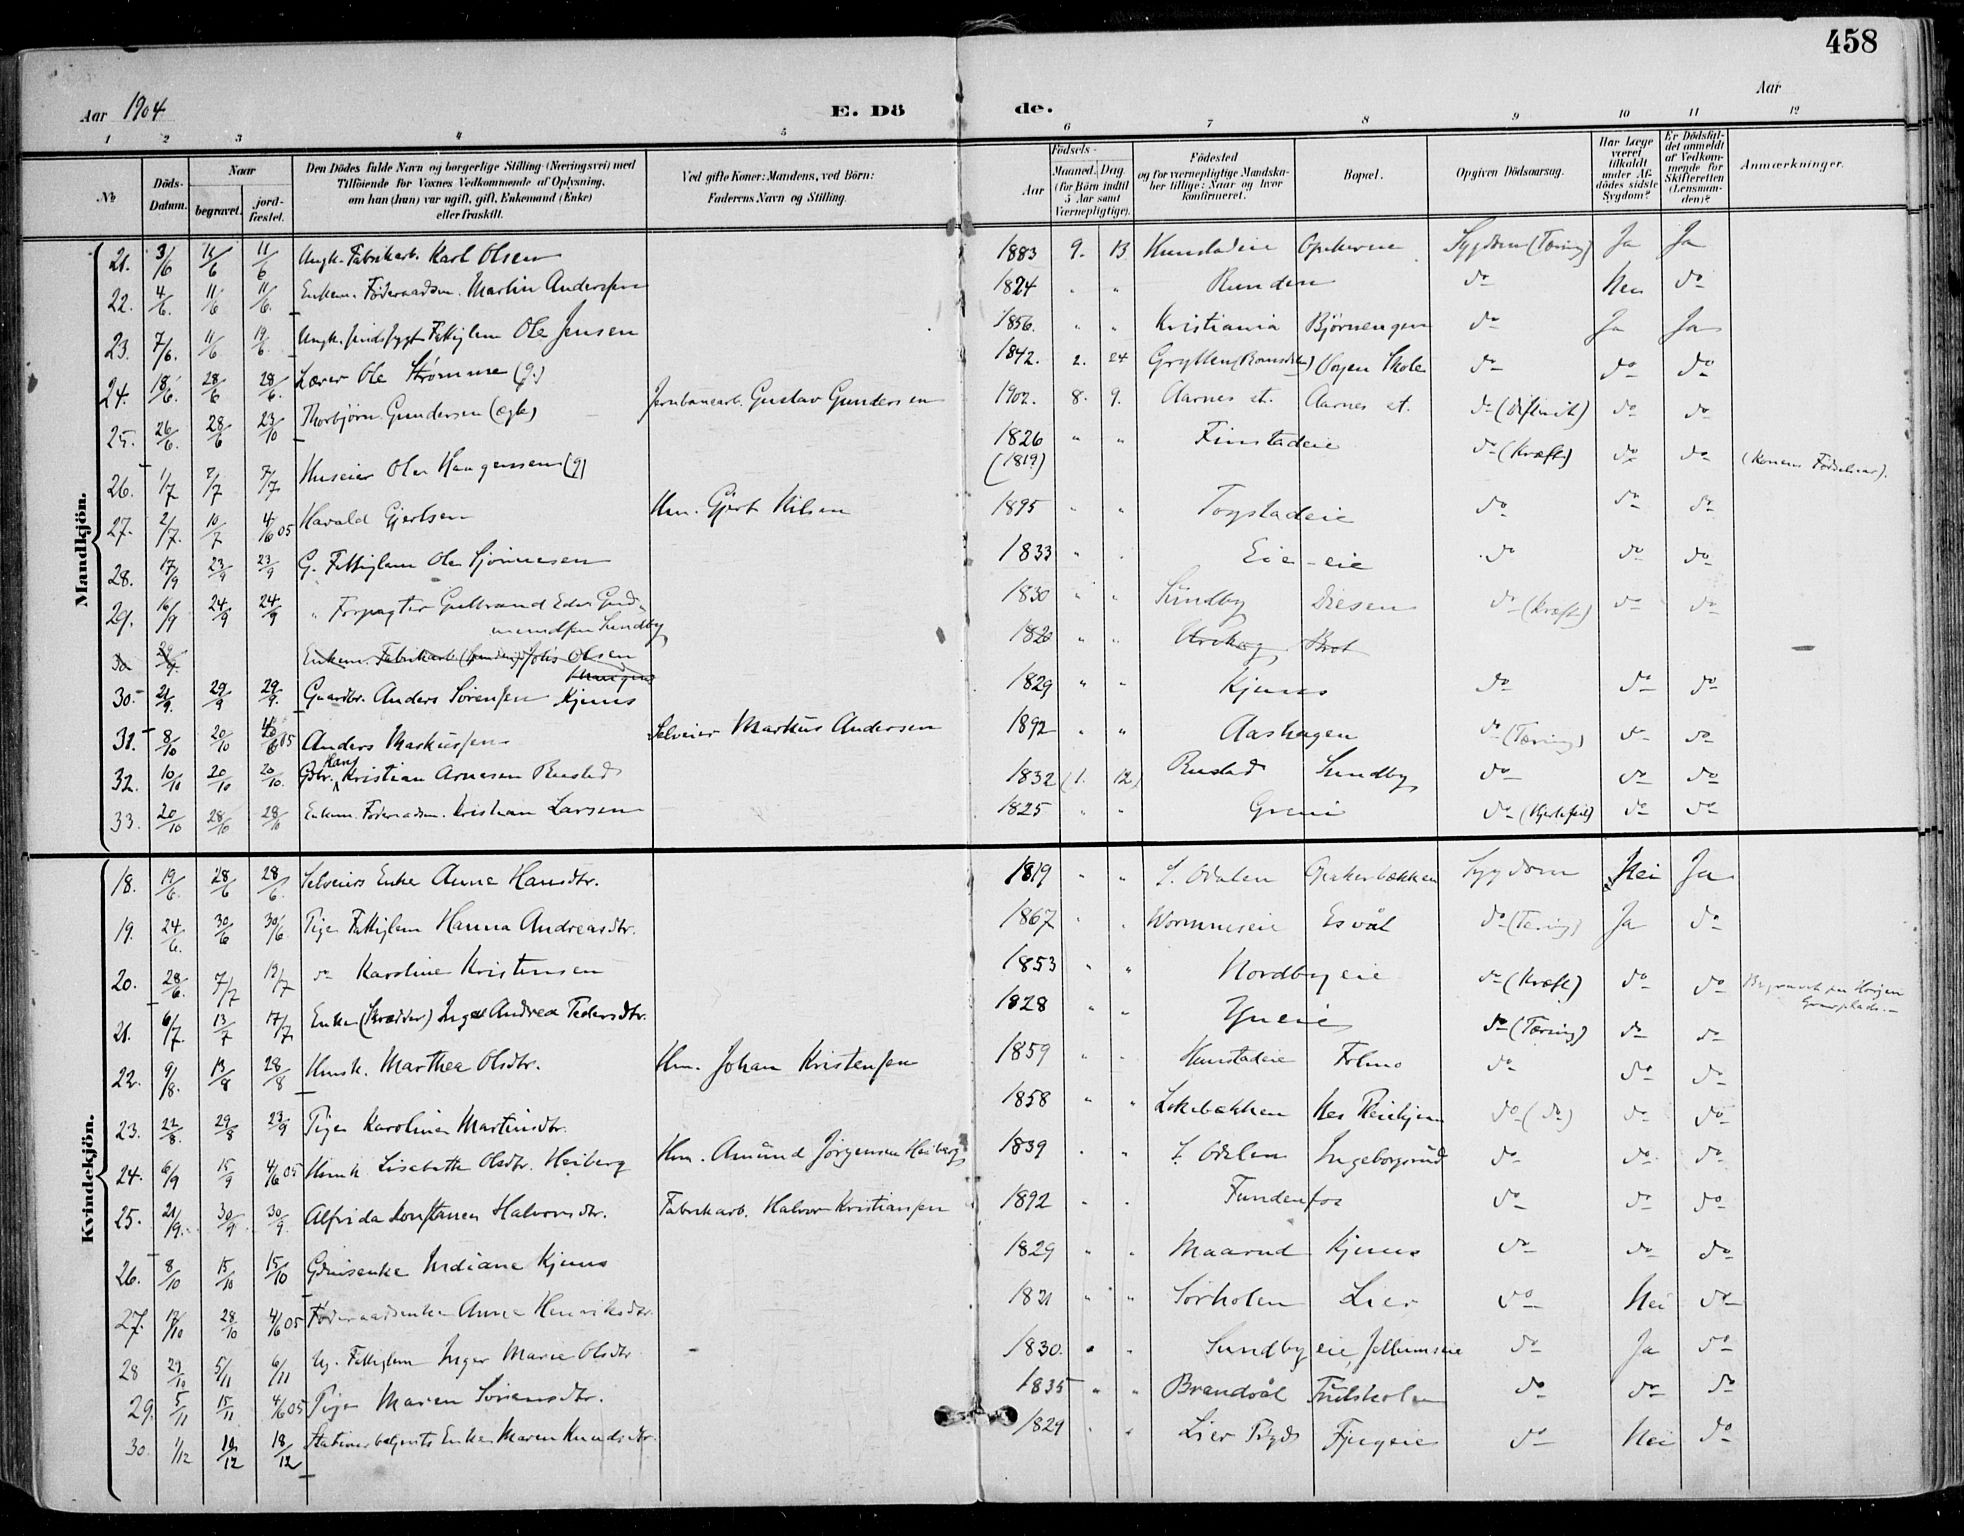 458
Aar 1904
E. Dö de.
Aar
1 2 3 4 5 6 7 8 9 10 11 12
№
Döds-Datum.
Naar
begravet.
jord-fæstet.
Den Dödes fulde Navn og borgerlige Stilling (Næringsvei) med
Tilföiende for Voxnes Vedkommende af Oplysning,
om han (hun) var ugift, gift, Enkemand (Enke)
eller fraskilt.
Ved gifte Koner: Mandens, ved Börn:
Faderens Navn og Stilling.
Födsels-
Aar
Maaned. Dag
(for Börn indtil
5 Aar samt
Værnepligtige).
Födested
og for værnepligtige Mandska-
ber tillige: Naar og hvor
konfirmeret.
Bopæl.
Opgiven Dödsaarsag.
Har Læge
været
tilkaldt
under Af-
dödes sidste
Sygdom?
Er Dödsfal-
det anmeldt
af Vedkom-
mende for
Skifteretten
(Lensman-
den)?
Anmærkninger.
Mandkjön.
21. 3/6 11/6 11/6 Ungk. Fabrikarb. Karl Olsen 1883 9. 13 Hunstadeie Opakereie Sygdom (Tæring) Ja Ja
22. 4/6. 11/6 11/6. Enkem. Föderaadsm. Martin Andersen 1824 " " Runden do Nei do
23. 7/6. 11/6 19/6. Ungk. sindssygt Fattiglem Ole Jensen 1856. " " Kristiania Björnengen do Ja Ja
24. 18/6. 28/6 28/6. Lærer Ole Strömme (g.) 1842. 2. 24 Grytten (Romsdalen) Skole do do do
25. 26/6. 28/6 23/10 Thorbjörn Gundersen (ægte) Jernbanearb. Gustav Gundersen 1902. 8. 9. Aarnes st. Aarnes st. do (Difterit) do do
26. 1/7 7/7 7/7 Huseier Ole Haagensen (g) 1826 (1819) " " Finstadeie do (Kræft) do do (Konens Fødselsaar).
27. 2/7. 10/7 4/6 05 Harald Gjertsen Hm. Gjert Nilsen 1895 " " Togstadeie do do do
28. 17/9 23/9 23/9 G. Fattiglem Ole 1833 " " Eie-eie do do do
29. 16/9 24/9 24/9 " Forpagter Gulbrand Eder Gud-
mundsen Sundby 1830 " " Sundby Disen do (Kræft) do do
30 29/9. Enkem. Fabrikarb. Johs Olsen 1820 " " Urskog
30. 21/9. 29/9 29/9. Gaardbr. Anders Sörensen Kjuus 1829 " " Kjuus do do do
31. 8/10 20/10 4/6 05 Anders Markussen Selveier Markus Andersen 1892 " " Aashagen do (Tæring) do do
32. 10/10 20/10 20/10. Gbr. Hans Kristian Arnesen Rustad 1832 (1. 12) Rustad Sundby do do do
33. 20/10 28/10 28/10 Enkem. Föderaadsm. Kristian Larsen 1825 " " Greni do (Hjertefeil) do do
Kvindekjön.
18. 19/6 28/6 28/6. Selveiers Enke Anne Hansdtr. 1819 " " S. Odalen Sygdom Nei Ja
19. 24/6. 30/6 30/6 Pige Fattiglem Hanna Andreasdtr. 1867 " " Wormneseie Esvål do (Tæring) Ja do
20. 28/6. 7/7 12/7 do Karoline Kristensen 1853 " " Nordbyeie do (Kræft) do do
21. 6/7. 13/7 17/7 Enke (Skrædder) Inger Andrea Pedersdtr. 1828 " " do (Tæring) do do
22. 9/8. 13/8 28/8 Husk. Marthea Olsdtr. Hm. Johan Kristensen 1859 " " Hunstadeie Folmo do do do
23. 22/8. 29/8 23/9 Pige Karoline Martinsdtr. 1858 " " Lokebækken Nes Pleiehjem do (do) do do
24. 6/9 15/9 4/6 05 Husk. Lisabeth Olsdtr. Heiberg Hm. Amund Jörgensen Heiberg 1839 " " S. Odalen Ingeborgrud do do do
25. 21/9. 30/9 30/9. Alfrida Konstance Halvorsdtr. Fabrikarb. Halvor Kristiansen 1892 " " Fundenfos do do do
26. 8/10 15/10 15/10 Indiane Kjuus 1829 " " Maarud Kjuus do do do
27. 17/10 28/10 4/6 05 Föderaadsenke Anne Henriksdtr. 1821 " " Sörholen Lier do Nei do
28 29/10 5/11 6/11 Ug. Fattiglem Inger Marie Olsdtr. 1830. " " Sundbyeie, do Ja do
29. 5/11 15/11 4/6 05 Pige Maren Sörensdtr. 1835 " " Brandvål do do do
30. 1/12 10/12 18/12 Enke Maren Knudsdtr. 1829 " " Lier do Nei do